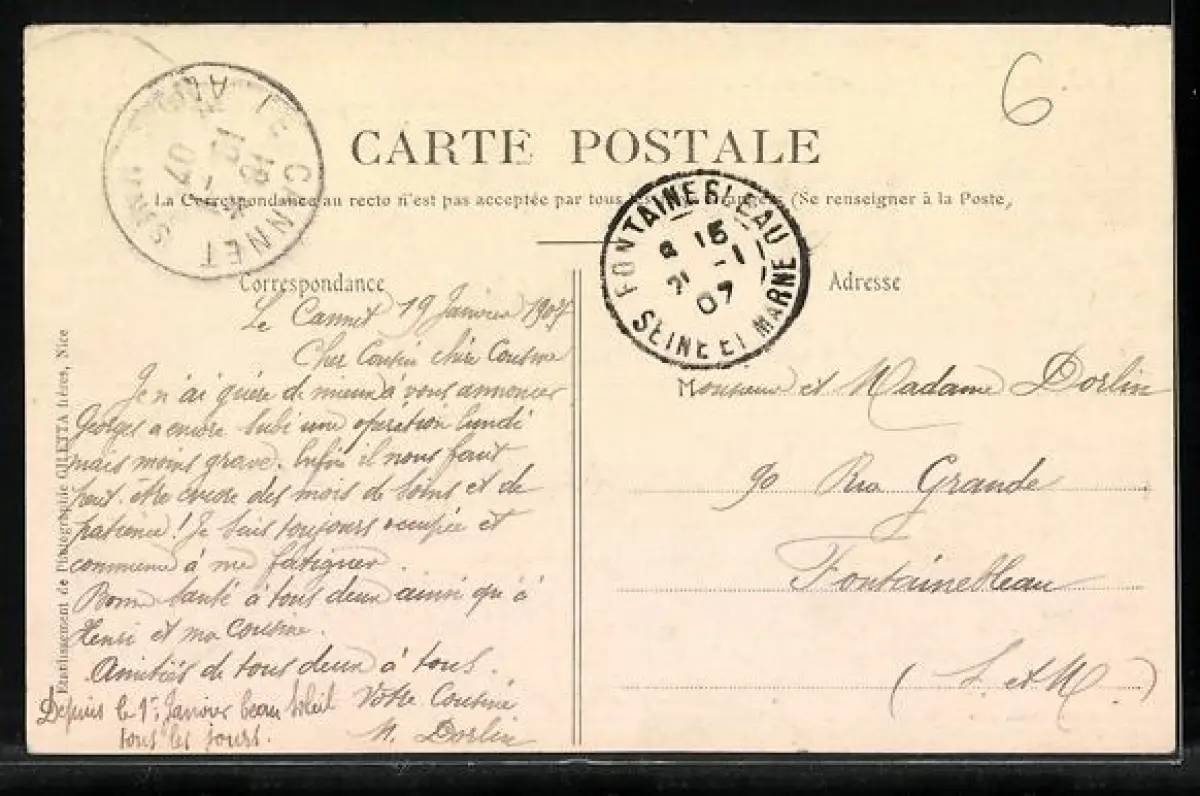 6
CARTE POSTALE
La Correspondance au recto n'est pas acceptée par tous (Se renseigner à la Poste,
LE CANNET
19
07
FONTAINEBLEAU
8 15
21 -1
07
SEINE ET MARNE
Correspondance
Adresse
Le Cannet 19 Janvier 1907
Cher Cousin chère Cousine
Je n'ai guère de mieux à vous annoncer
Georges a encore subi une opération lundi
mais moins grave. Enfin il nous faut
peut-être encore des mois de soins et de
patience! Je suis toujours occupée et
commence à me fatiguer.
Bonne santé à tous deux ainsi qu'à
Henri et ma cousine.
Amitiés de tous deux à tous.
Votre Cousine
M. Dorlin
Depuis le 1er Janvier beau soleil
tous les jours.
Monsieur et Madame Dorlin
90 Rue Grande
Fontainebleau
(S. et M)
Etablissement de Photographie GILETTA frères, Nice